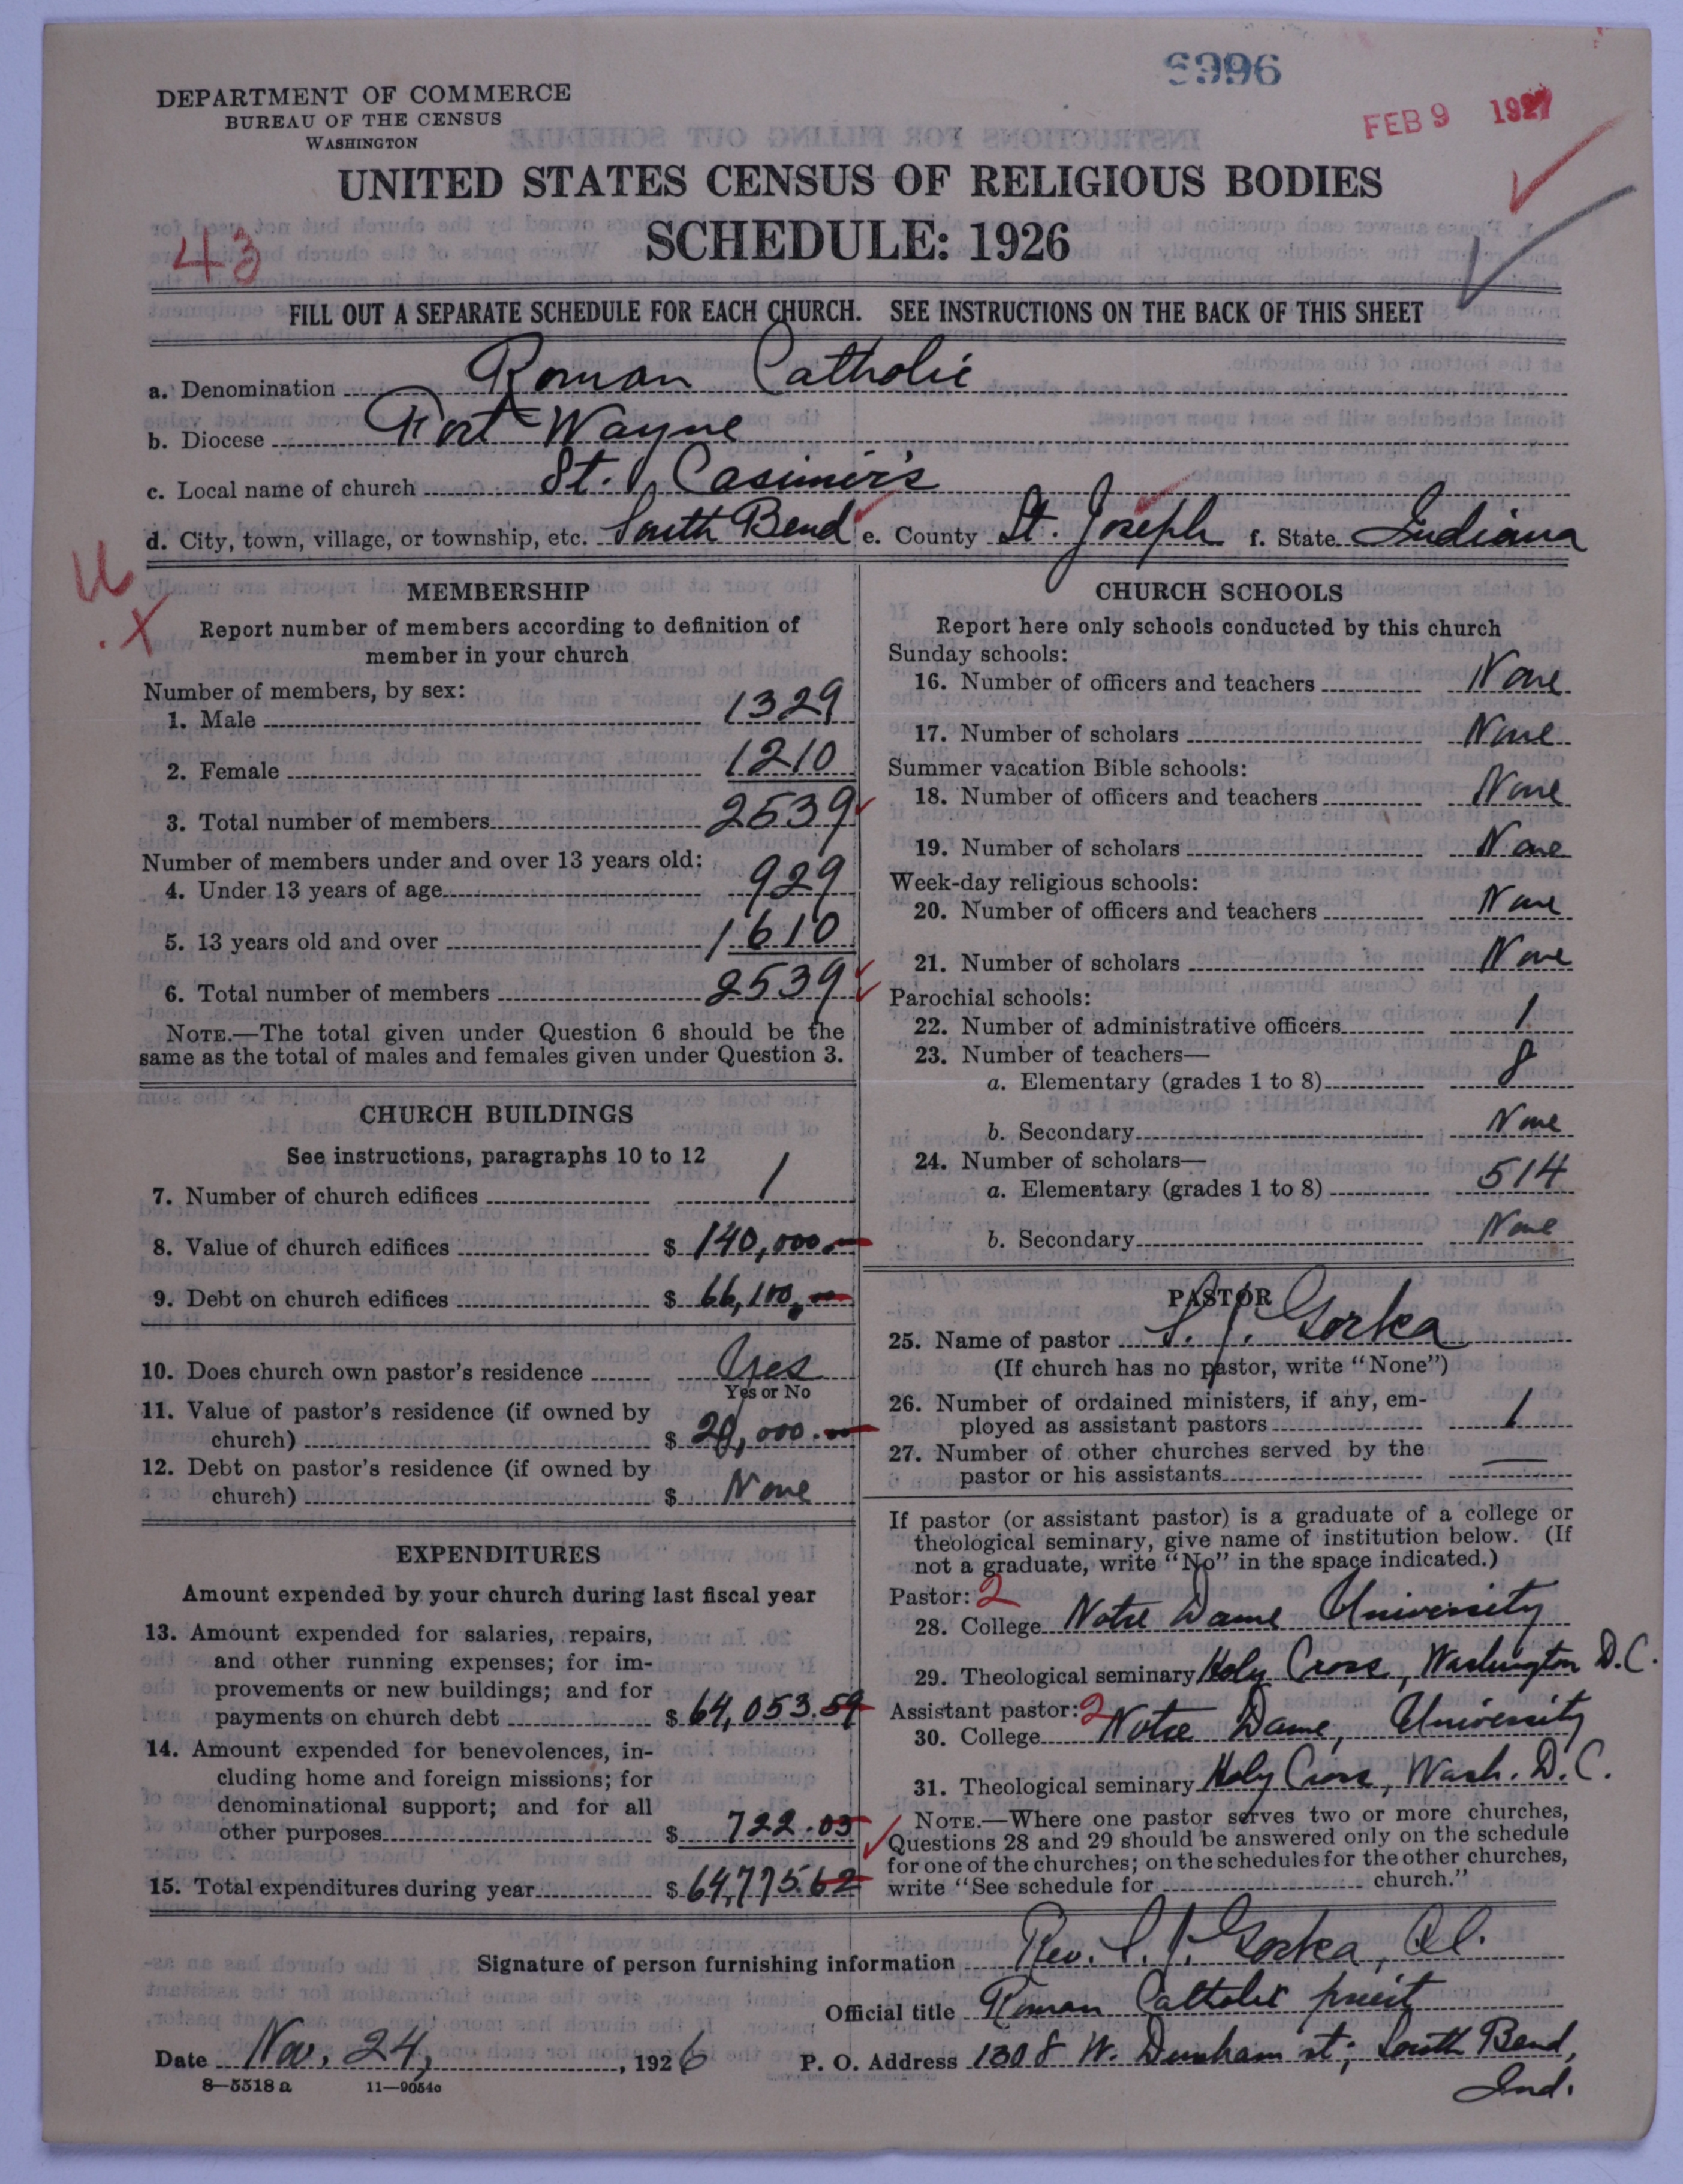 6996
FEB 9 1927
DEPARTMENT OF COMMERCE
BUREAU OF THE CENSUS
WASHINGTON
UNITED STATES CENSUS OF RELIGIOUS BODIES
SCHEDULE: 1926
43
FILL OUT A SEPARATE SCHEDULE FOR EACH CHURCH. SEE INSTRUCTIONS ON THE BACK OF THIS SHEET
a. Denomination Roman Catholic
b. Diocese Fort Wayne
c. Local name of church St. Casimir's
d. City, town, village, or township, etc. South Bend e. County St. Joseph f. State Indiana
MEMBERSHIP
Report number of members according to definition of
member in your church
Number of members, by sex:
1. Male 1329
2. Female 1210
3. Total number of members 2539
Number of members under and over 13 years old:
4. Under 13 years of age 929
5. 13 years old and over 1610
6. Total number of members 2539
NOTE.—The total given under Question 6 should be the
same as the total of males and females given under Question 3.
CHURCH BUILDINGS
See instructions, paragraphs 10 to 12
7. Number of church edifices 1
8. Value of church edifices $ 140,000.—
9. Debt on church edifices $ 66,100.—
10. Does church own pastor's residence Yes
Yes or No
11. Value of pastor's residence (if owned by
church) $ 20,000.—
12. Debt on pastor's residence (if owned by
church) $ None
EXPENDITURES
Amount expended by your church during last fiscal year
13. Amount expended for salaries, repairs,
and other running expenses; for im-
provements or new buildings; and for
payments on church debt $ 64,053.59
14. Amount expended for benevolences, in-
cluding home and foreign missions; for
denominational support; and for all
other purposes $ 722.03
15. Total expenditures during year $ 64,775.62
CHURCH SCHOOLS
Report here only schools conducted by this church
Sunday schools:
16. Number of officers and teachers None
17. Number of scholars None
Summer vacation Bible schools:
18. Number of officers and teachers None
19. Number of scholars None
Week-day religious schools:
20. Number of officers and teachers None
21. Number of scholars None
Parochial schools:
22. Number of administrative officers 1
23. Number of teachers—
a. Elementary (grades 1 to 8) 8
b. Secondary None
24. Number of scholars—
a. Elementary (grades 1 to 8) 514
b. Secondary None
PASTOR
25. Name of pastor S. J. Gorka
(If church has no pastor, write "None")
26. Number of ordained ministers, if any, em-
ployed as assistant pastors 1
27. Number of other churches served by the
pastor or his assistants —
If pastor (or assistant pastor) is a graduate of a college or
theological seminary, give name of institution below. (If
not a graduate, write "No" in the space indicated.)
Pastor: 2
28. College Notre Dame University
29. Theological seminary Holy Cross, Washington D.C.
Assistant pastor: 2
30. College Notre Dame, University
31. Theological seminary Holy Cross, Wash. D.C.
NOTE.—Where one pastor serves two or more churches,
Questions 28 and 29 should be answered only on the schedule
for one of the churches; on the schedules for the other churches,
write "See schedule for church."
Signature of person furnishing information Rev. S. J. Gorka,
Official title Roman Catholic priest
Date Nov. 24, 1926 P. O. Address 1308 W. Dunham st; South Bend,
Ind.
8—5518 a 11—9054c